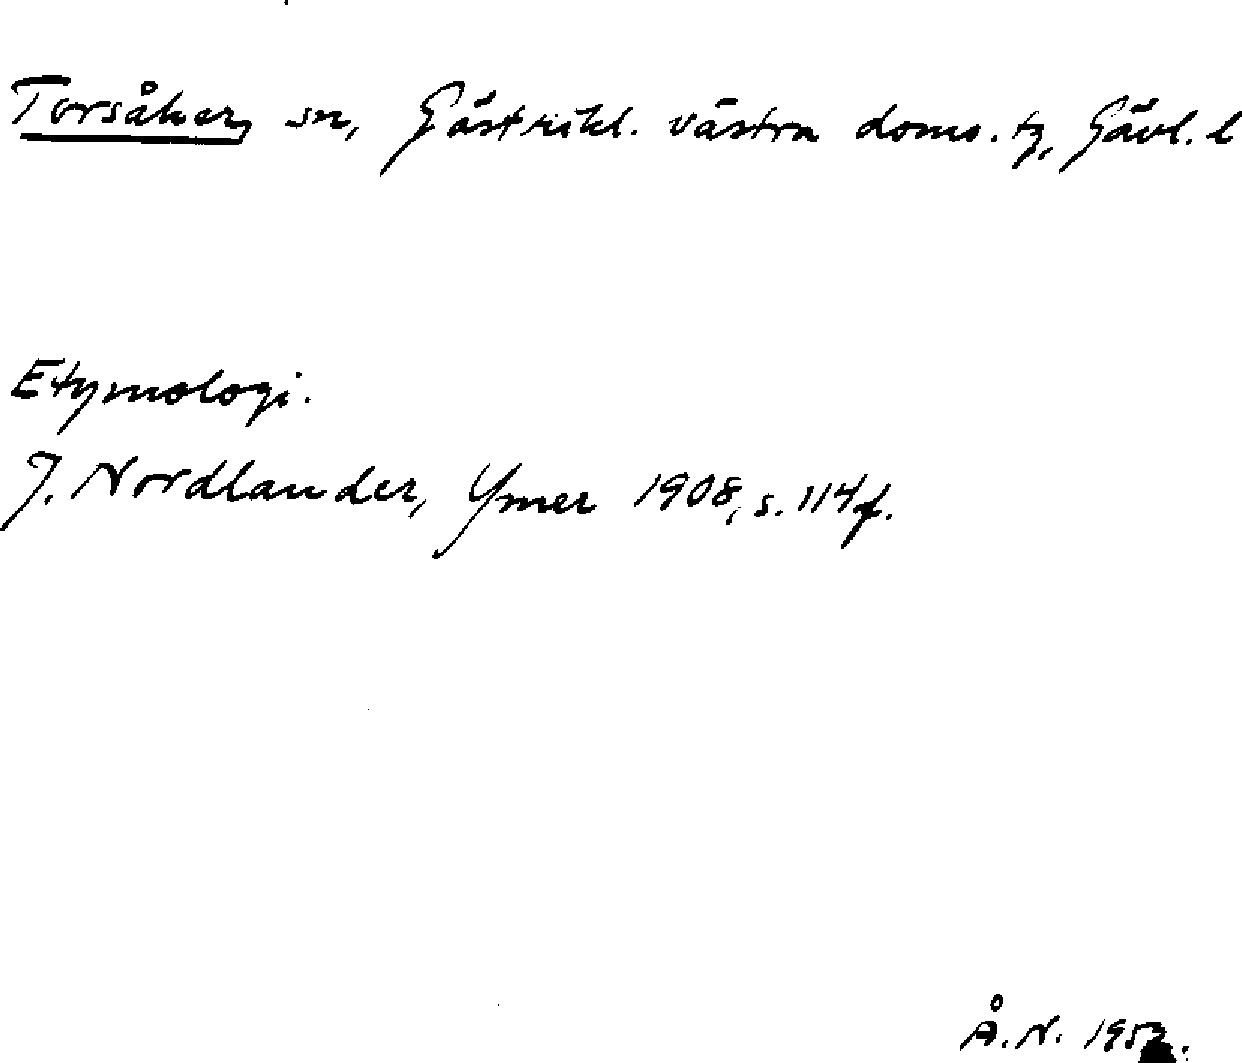 Torsåker, sn, Gästrikl. västra doms. tg, Gävl. l
Etymologi.
J. Nordlander, Ymer 1908, s. 114 f.
Å. N. 1952.